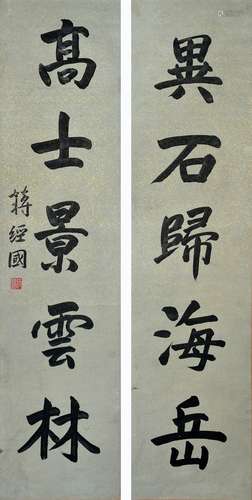 異石歸海岳
高士景雲林
蔣經國